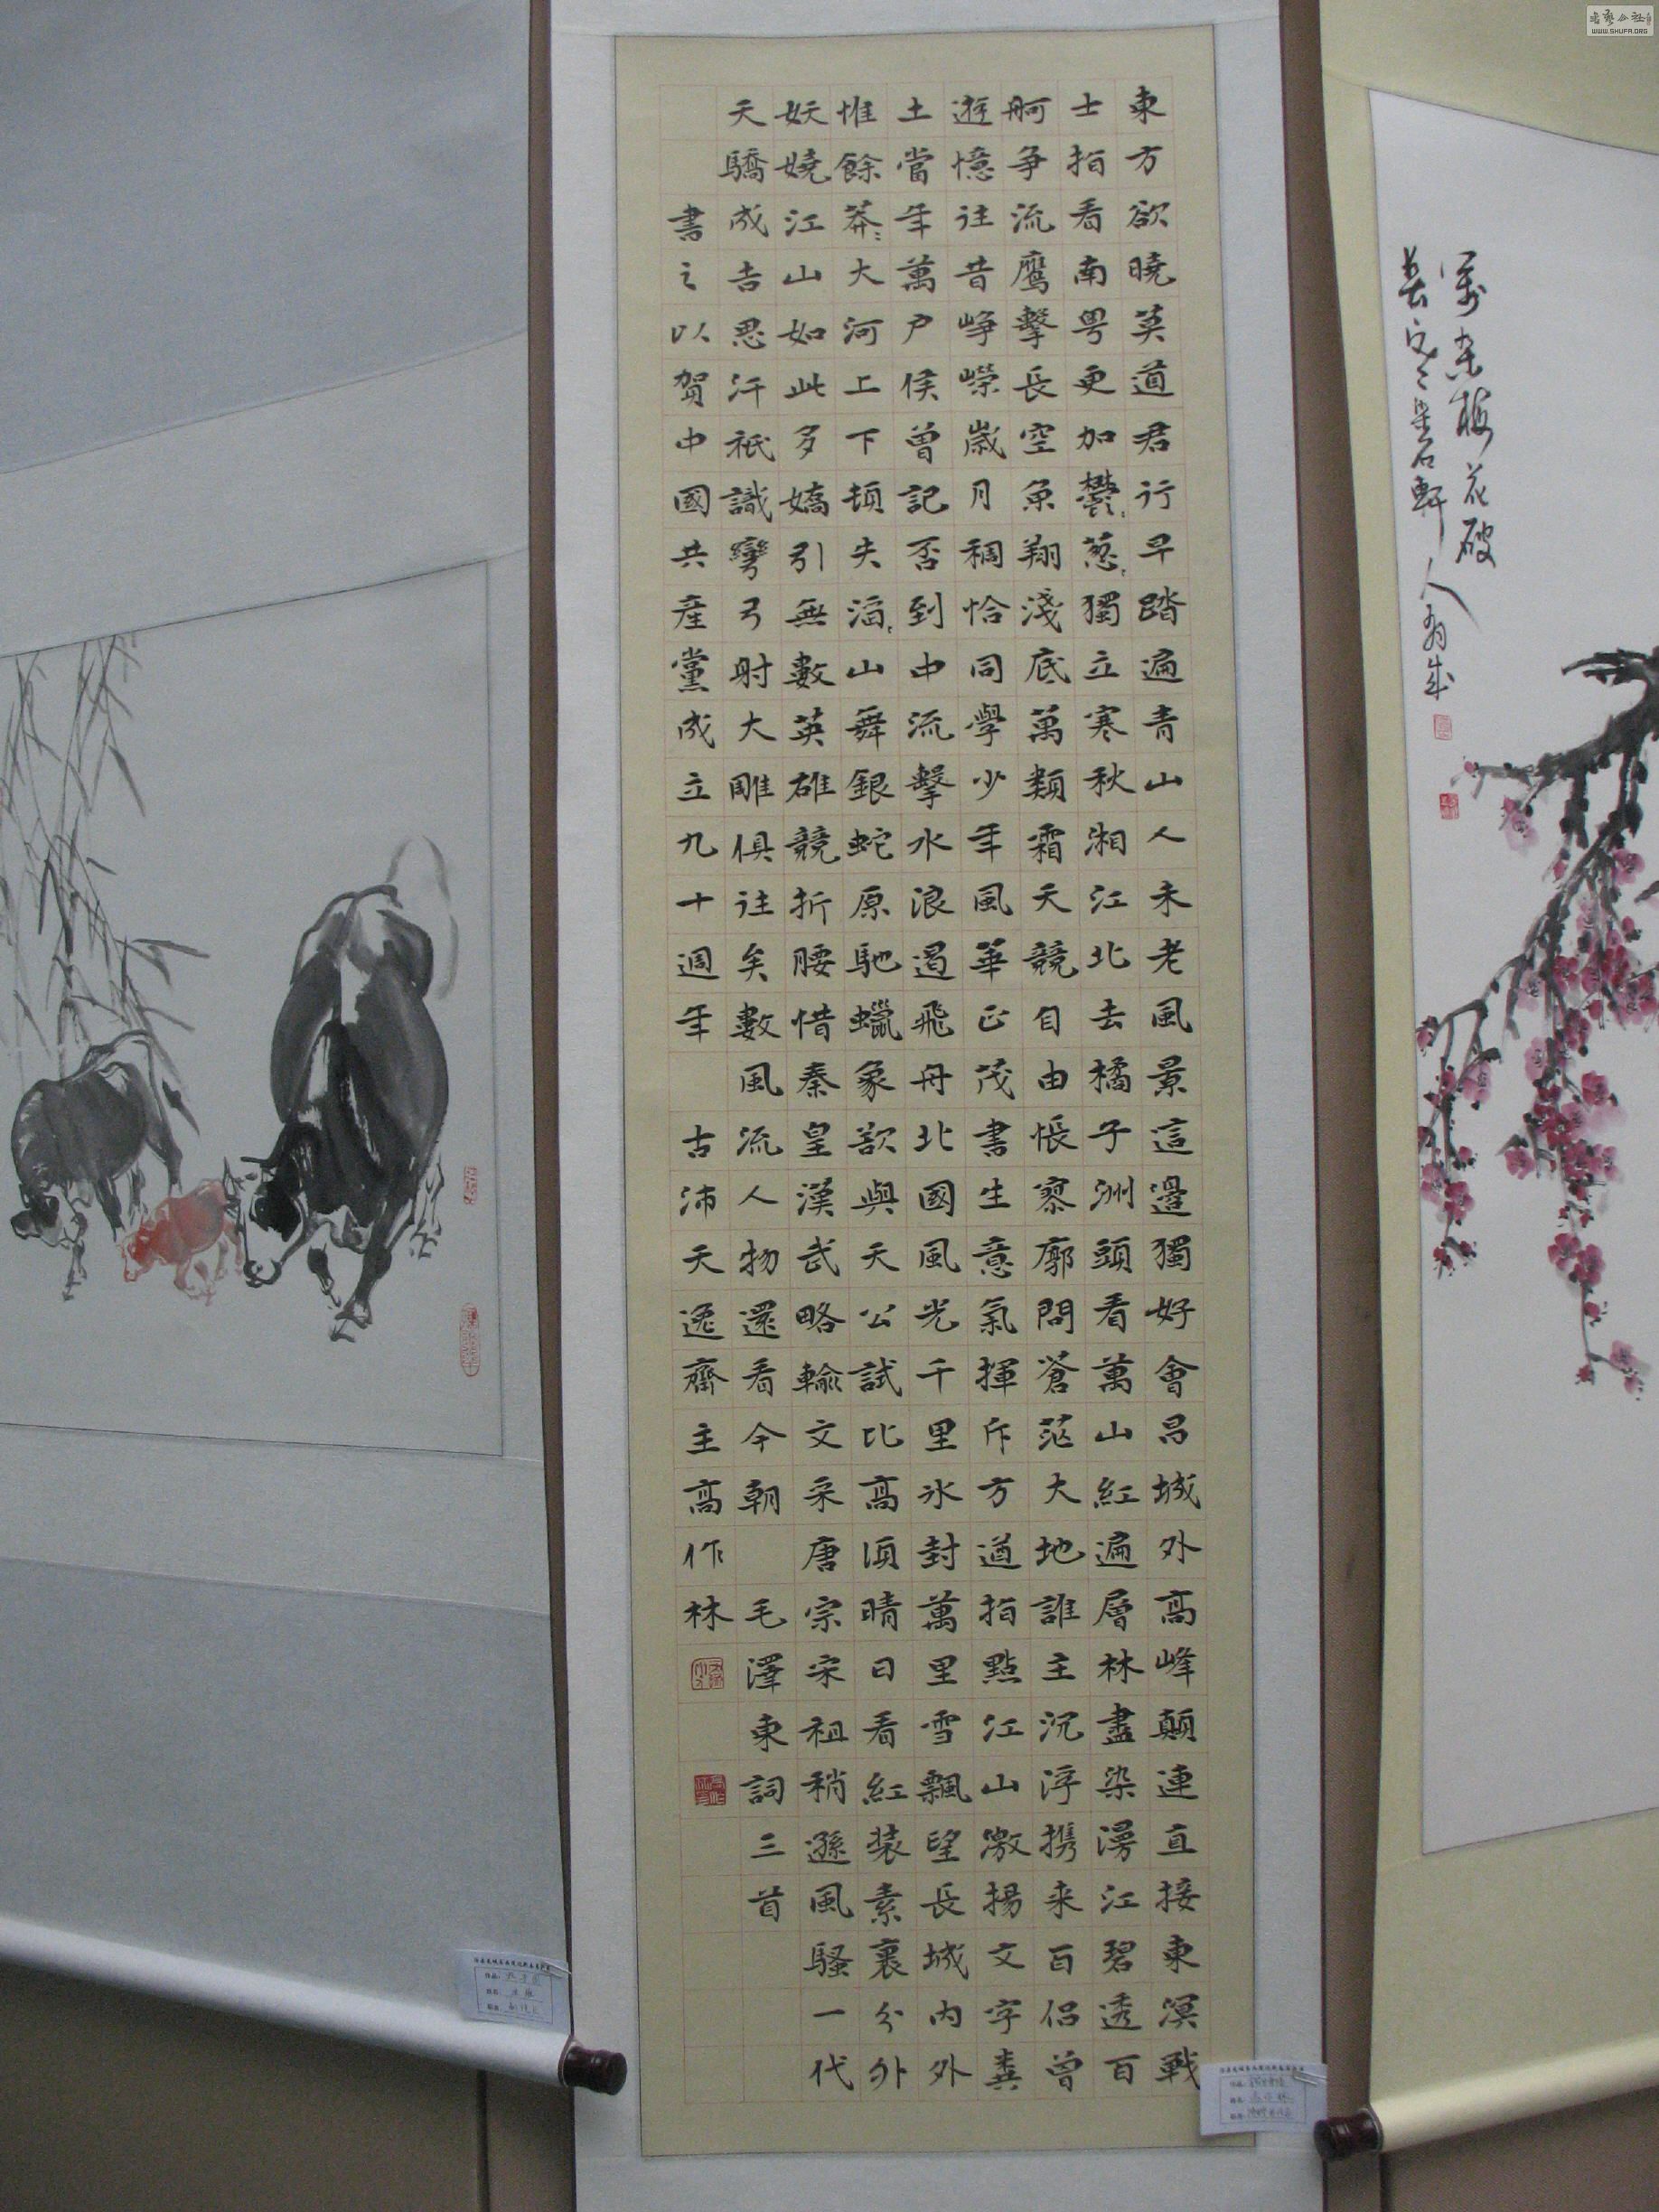 東方欲曉莫道君行早踏遍青山人未老風景這邊獨好會昌城外高峰顛連直接東溟戰
士指看南粤更加鬱〻葱〻獨立寒秋湘江北去橘子洲頭看萬山紅遍層林盡染漫江碧透百
舸争流鷹擊長空魚翔淺底萬類霜天競自由悵寥廓問蒼茫大地誰主沉浮携来百侣曾
遊憶往昔崢嶸歲月稠恰同學少年風華正茂書生意氣揮斥方遒指點江山激揚文字糞
土當年萬户侯曾記否到中流擊水浪遏飛舟北國風光千里冰封萬里雪飄望長城内外
惟餘莽〻大河上下頓失滔〻山舞銀蛇原馳蠟象欲與天公試比高須晴日看紅装素裹分外
妖嬈江山如此多嬌引無數英雄競折腰惜秦皇漢武略輸文采唐宗宋祖稍遜風騷一代
天驕成吉思汗衹識彎弓射大雕俱往矣數風流人物還看今朝 毛澤東詞三首
書之以賀中國共産黨成立九十週年 古沛天逸齋主高作林
梅花破
軒人
WWW.SHUFA.ORG